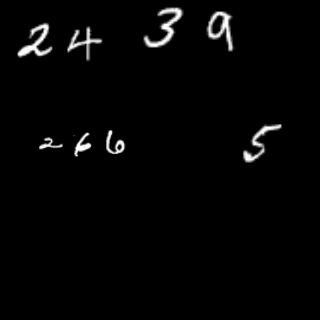 24 39
266 5